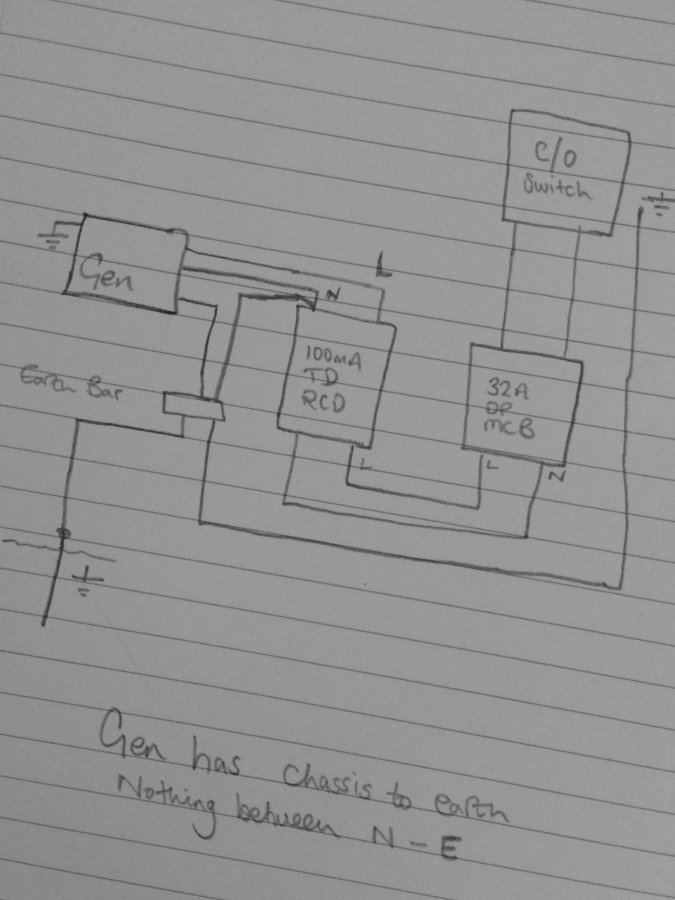 C/O
Switch
Gen
L
N
100mA
TD
RCD
Earth Bar
32A
DP
MCB
L
L
N
Gen has chassis to earth
Nothing between N - E